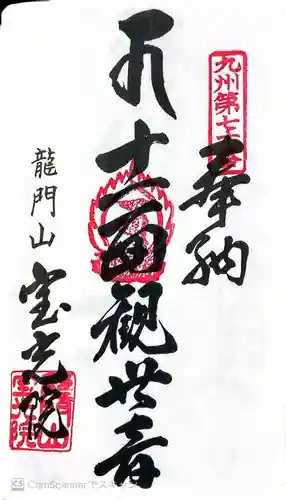 九州第七十
奉納
十一面観世音
龍門山
宝光院
CamScannerでスキャン